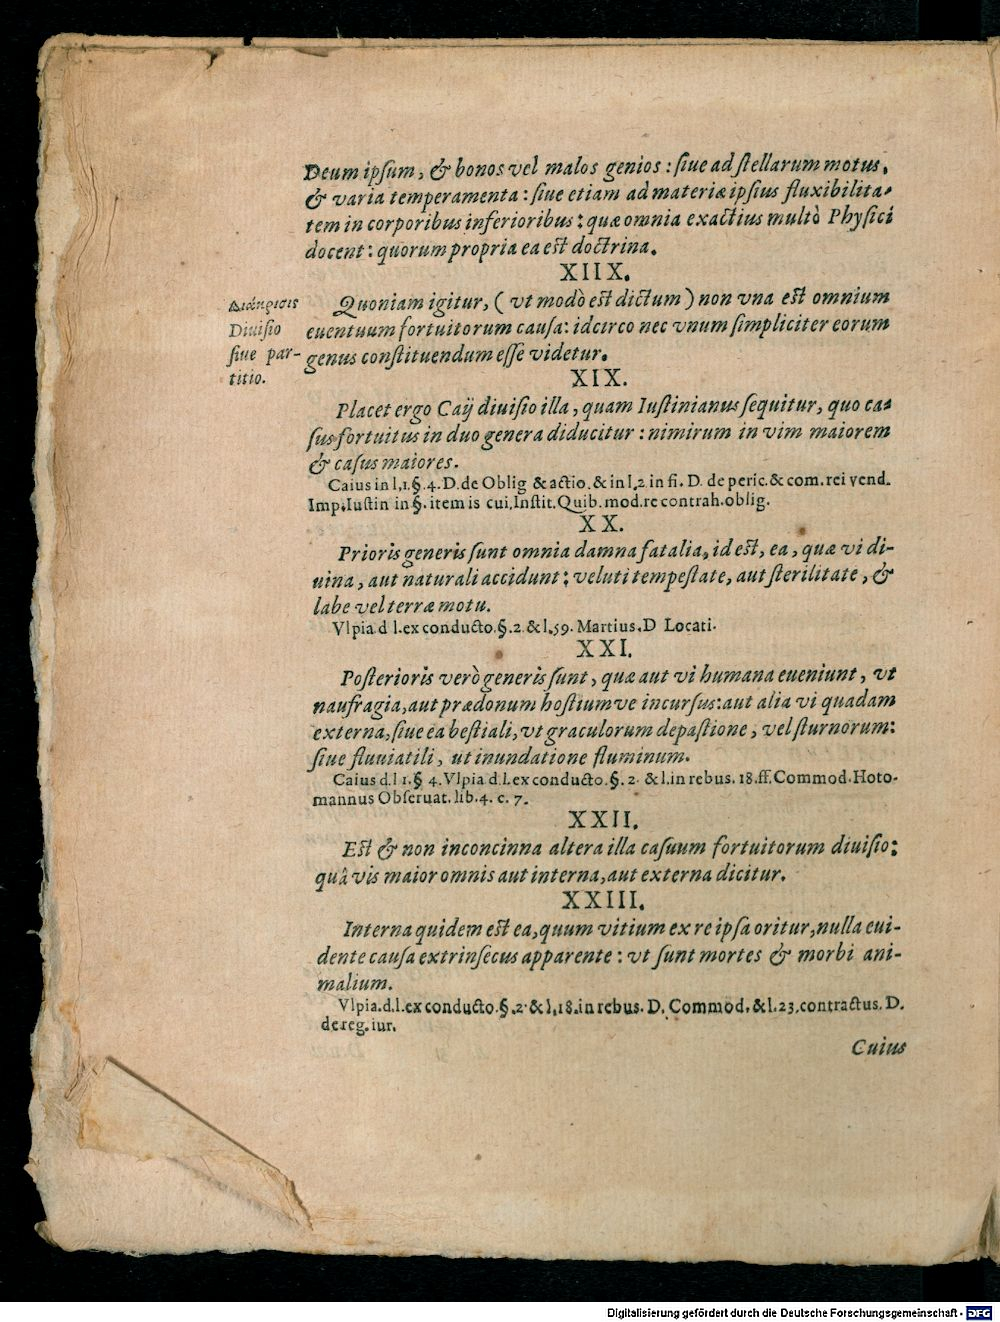 Deum ipſum, & bonos vel malos genios: ſiue ad ſtellarum motus,
& varia temperamenta: ſiue etiam ad materiæ ipſius fluxibilita-
tem in corporibus inferioribus: quæ omnia exactius multò Phyſici
docent: quorum propria ea eſt doctrina.
XIIX.
Διάκρισις
Diuiſio
ſiue par-
titio.
Quoniam igitur, (vt modò eſt dictum) non vna eſt omnium
euentuum fortuitorum cauſa: idcirco nec vnum ſimpliciter eorum
genus conſtituendum eſſe videtur.
XIX.
Placet ergo Caij diuiſio illa, quam Iuſtinianus ſequitur, quo ca-
ſus fortuitus in duo genera diducitur: nimirum in vim maiorem
& caſus maiores.
Caius in l.1.§.4.D.de Oblig & actio.& in l.2 in fi. D. de peric.& com.rei vend.
Imp.Iuſtin in §.item is cui.Inſtit.Quib.mod.re contrah.oblig.
XX.
Prioris generis ſunt omnia damna fatalia, id eſt, ea, quæ vi di-
uina, aut naturali accidunt: veluti tempeſtate, aut ſterilitate, &
labe vel terræ motu.
Vlpia d l.ex conducto.§.2 & l.59. Martius.D Locati.
XXI.
Poſterioris verò generis ſunt, quæ aut vi humana eueniunt, vt
naufragia, aut prædonum hoſtiumve incurſus: aut alia vi quadam
externa, ſiue ea beſtiali, vt graculorum depaſtione, vel ſturnorum:
ſiue fluuiatili, ut inundatione fluminum.
Caius d.l 1.§ 4.Vlpia d.l.ex conducto.§.2. & l.in rebus.18.ff.Commod.Hoto-
mannus Obſeruat.lib.4. c.7.
XXII.
Eſt & non inconcinna altera illa caſuum fortuitorum diuiſio:
quâ vis maior omnis aut interna, aut externa dicitur.
XXIII.
Interna quidem eſt ea, quum vitium ex re ipſa oritur, nulla eui-
dente cauſa extrinſecus apparente: vt ſunt mortes & morbi ani-
malium.
Vlpia.d.l.ex conducto.§.2.& l.18.in rebus. D. Commod.& l.23.contractus.D.
de reg.iur.
Cuius
Digitalisierung gefördert durch die Deutsche Forschungsgemeinschaft - DFG